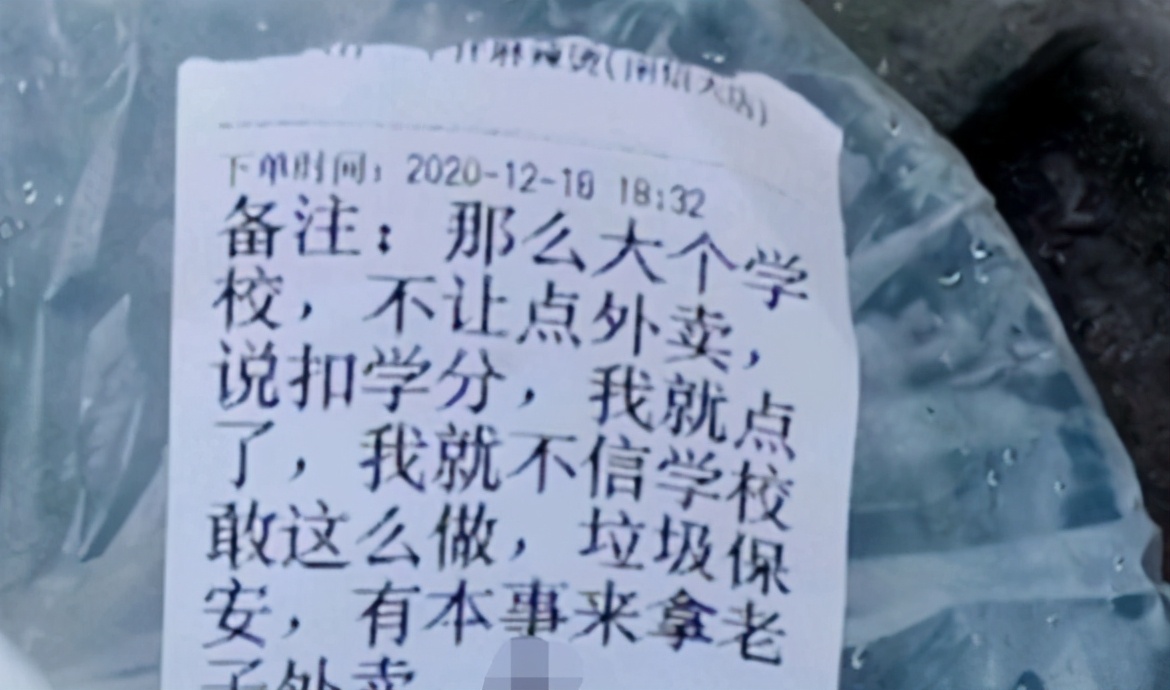 麻辣烫(南信大店)
下单时间：2020-12-10 18:32
备注：那么大个学
校，不让点外卖，
说扣学分，我就点
了，我就不信学校
敢这么做，垃圾保
安，有本事来拿老
子外卖